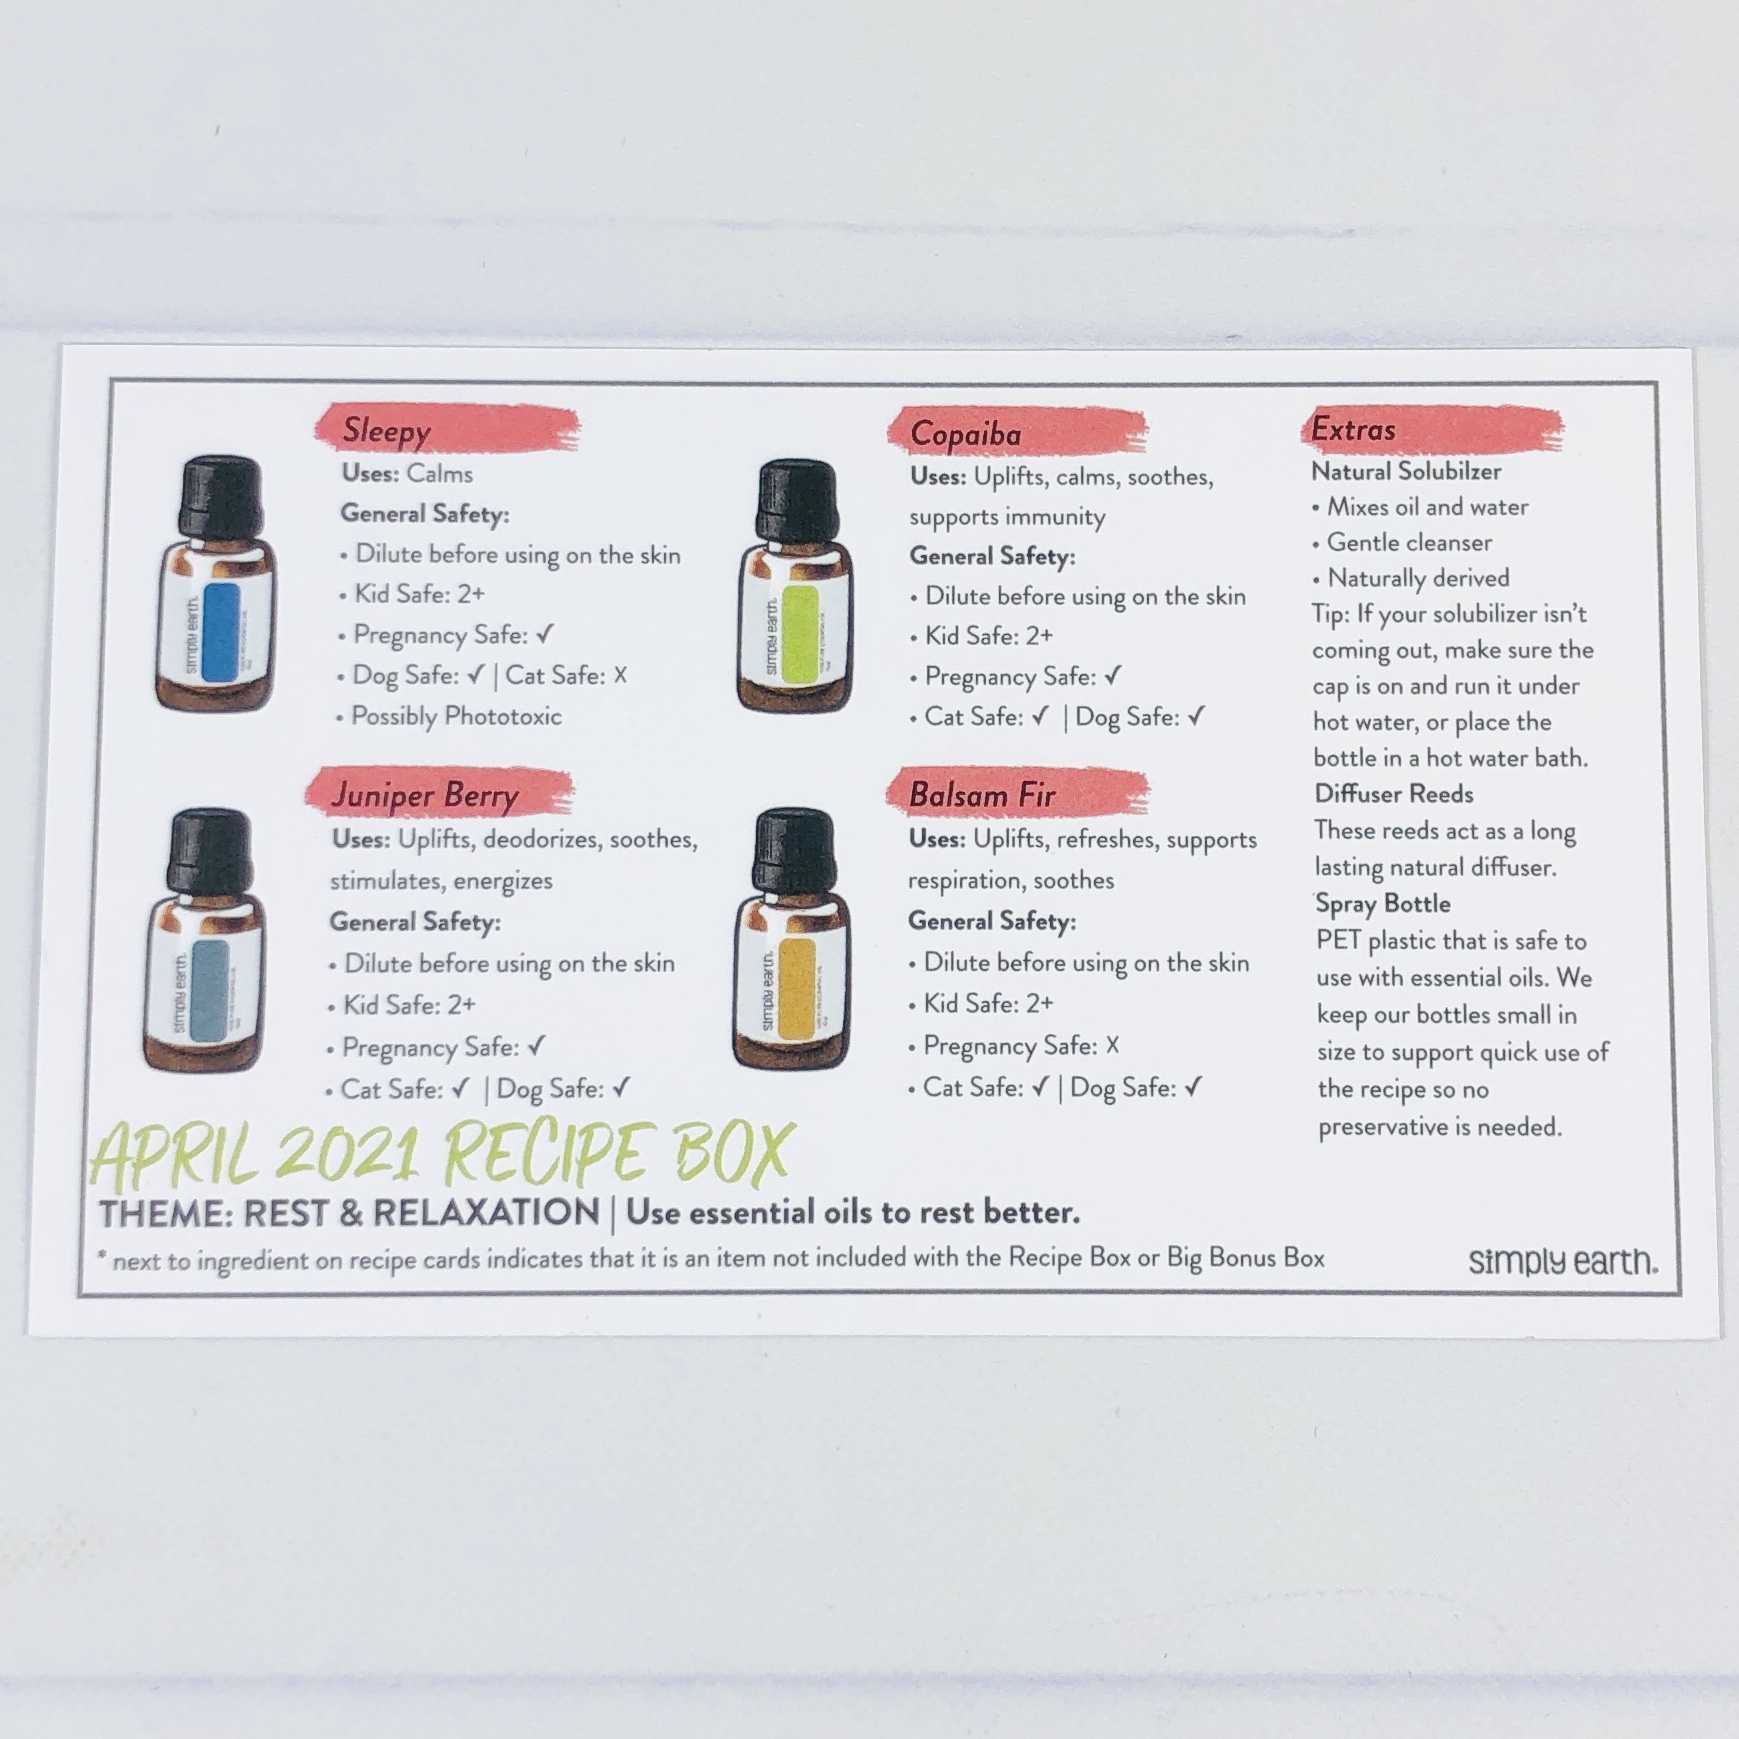 Sleepy
Uses: Calms
General Safety:
• Dilute before using on the skin
• Kid Safe: 2+
• Pregnancy Safe: ✓
• Dog Safe: ✓ | Cat Safe: X
• Possibly Phototoxic
simply earth.
Copaiba
Uses: Uplifts, calms, soothes,
supports immunity
General Safety:
• Dilute before using on the skin
• Kid Safe: 2+
• Pregnancy Safe: ✓
• Cat Safe: ✓ | Dog Safe: ✓
simply earth.
Juniper Berry
Uses: Uplifts, deodorizes, soothes,
stimulates, energizes
General Safety:
• Dilute before using on the skin
• Kid Safe: 2+
• Pregnancy Safe: ✓
• Cat Safe: ✓ | Dog Safe: ✓
simply earth.
Balsam Fir
Uses: Uplifts, refreshes, supports
respiration, soothes
General Safety:
• Dilute before using on the skin
• Kid Safe: 2+
• Pregnancy Safe: X
• Cat Safe: ✓ | Dog Safe: ✓
simply earth.
Extras
Natural Solubilzer
• Mixes oil and water
• Gentle cleanser
• Naturally derived
Tip: If your solubilizer isn't
coming out, make sure the
cap is on and run it under
hot water, or place the
bottle in a hot water bath.
Diffuser Reeds
These reeds act as a long
lasting natural diffuser.
Spray Bottle
PET plastic that is safe to
use with essential oils. We
keep our bottles small in
size to support quick use of
the recipe so no
preservative is needed.
APRIL 2021 RECIPE BOX
THEME: REST & RELAXATION | Use essential oils to rest better.
* next to ingredient on recipe cards indicates that it is an item not included with the Recipe Box or Big Bonus Box
simply earth.